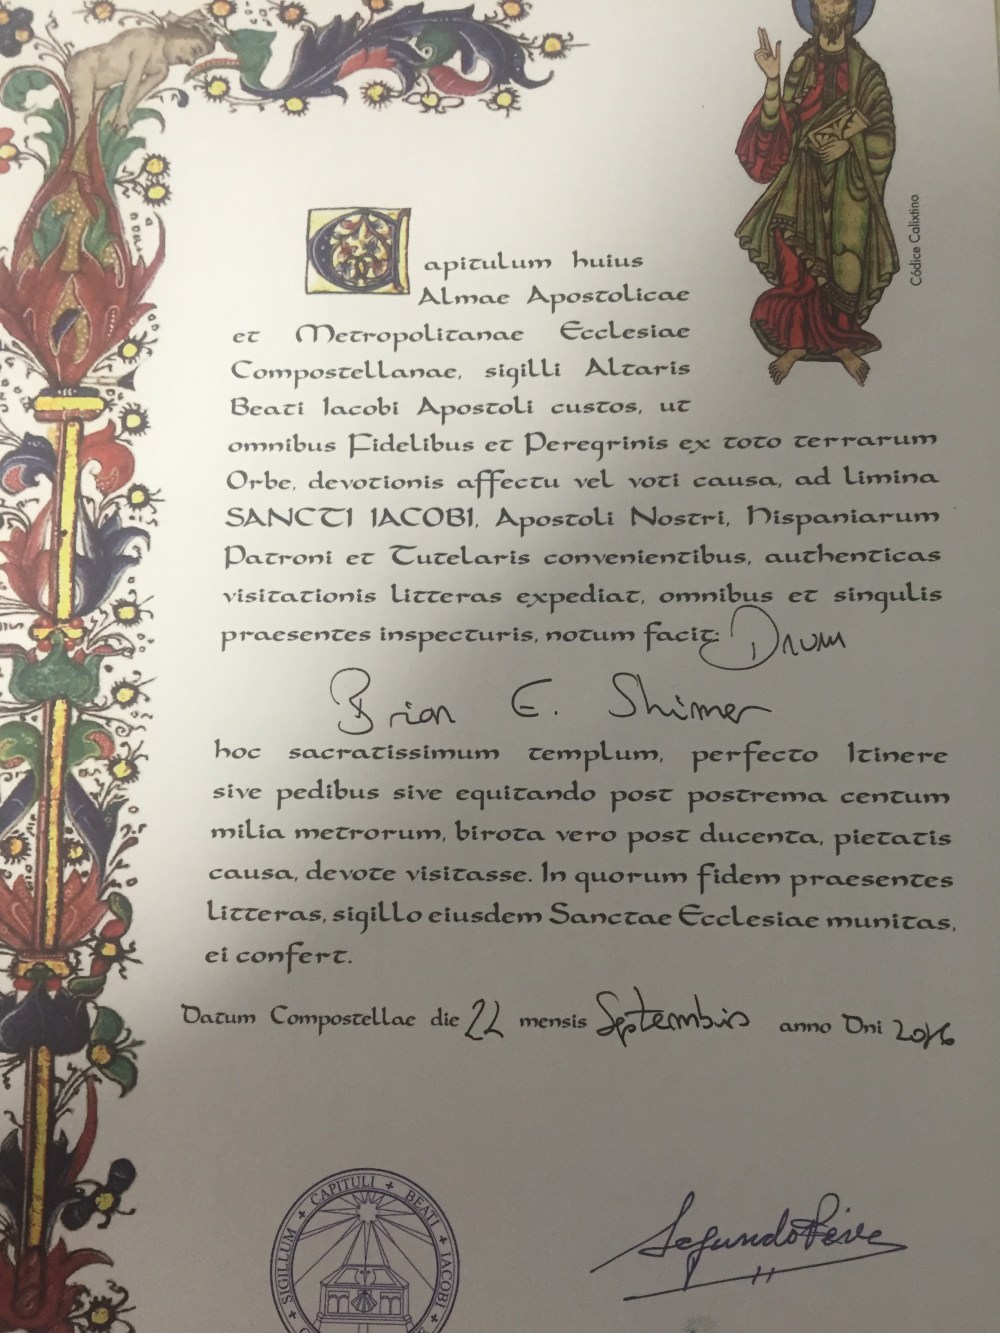 Códice Calixtino
Capitulum huius
Almae Apostolicae
et Metropolitanae Ecclesiae
Compostellanae, sigilli Altaris
Beati Iacobi Apostoli custos, ut
omnibus Fidelibus et Peregrinis ex toto terrarum
Orbe, devotionis affectu vel voti causa, ad limina
SANCTI IACOBI, Apostoli Nostri, Hispaniarum
Patroni et Tutelaris convenientibus, authenticas
visitationis litteras expediat, omnibus et singulis
praesentes inspecturis, notum facit: Dnum
Brian E. Shimer
hoc sacratissimum templum, perfecto Itinere
sive pedibus sive equitando post postrema centum
milia metrorum, birota vero post ducenta, pietatis
causa, devote visitasse. In quorum fidem praesentes
litteras, sigillo eiusdem Sanctae Ecclesiae munitas,
ei confert.
Datum Compostellae die 22 mensis Septembris anno Dni 2016
SIGILLUM + CAPITULI + BEATI + IACOBI
Segundo